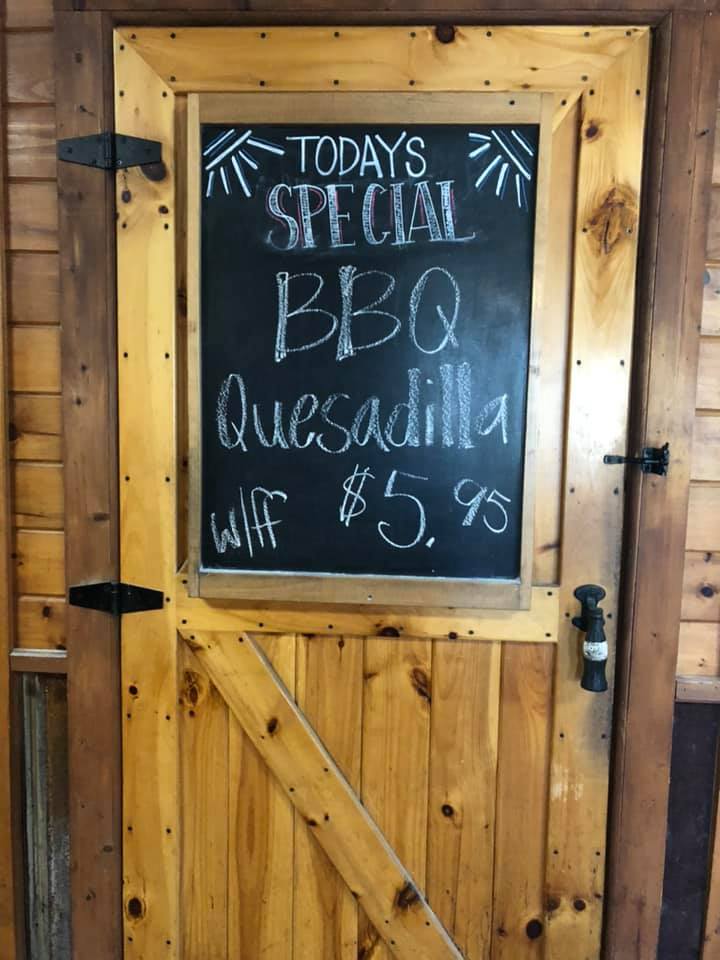 TODAYS
SPECIAL
BBQ
Quesadilla
w/ff $5.95